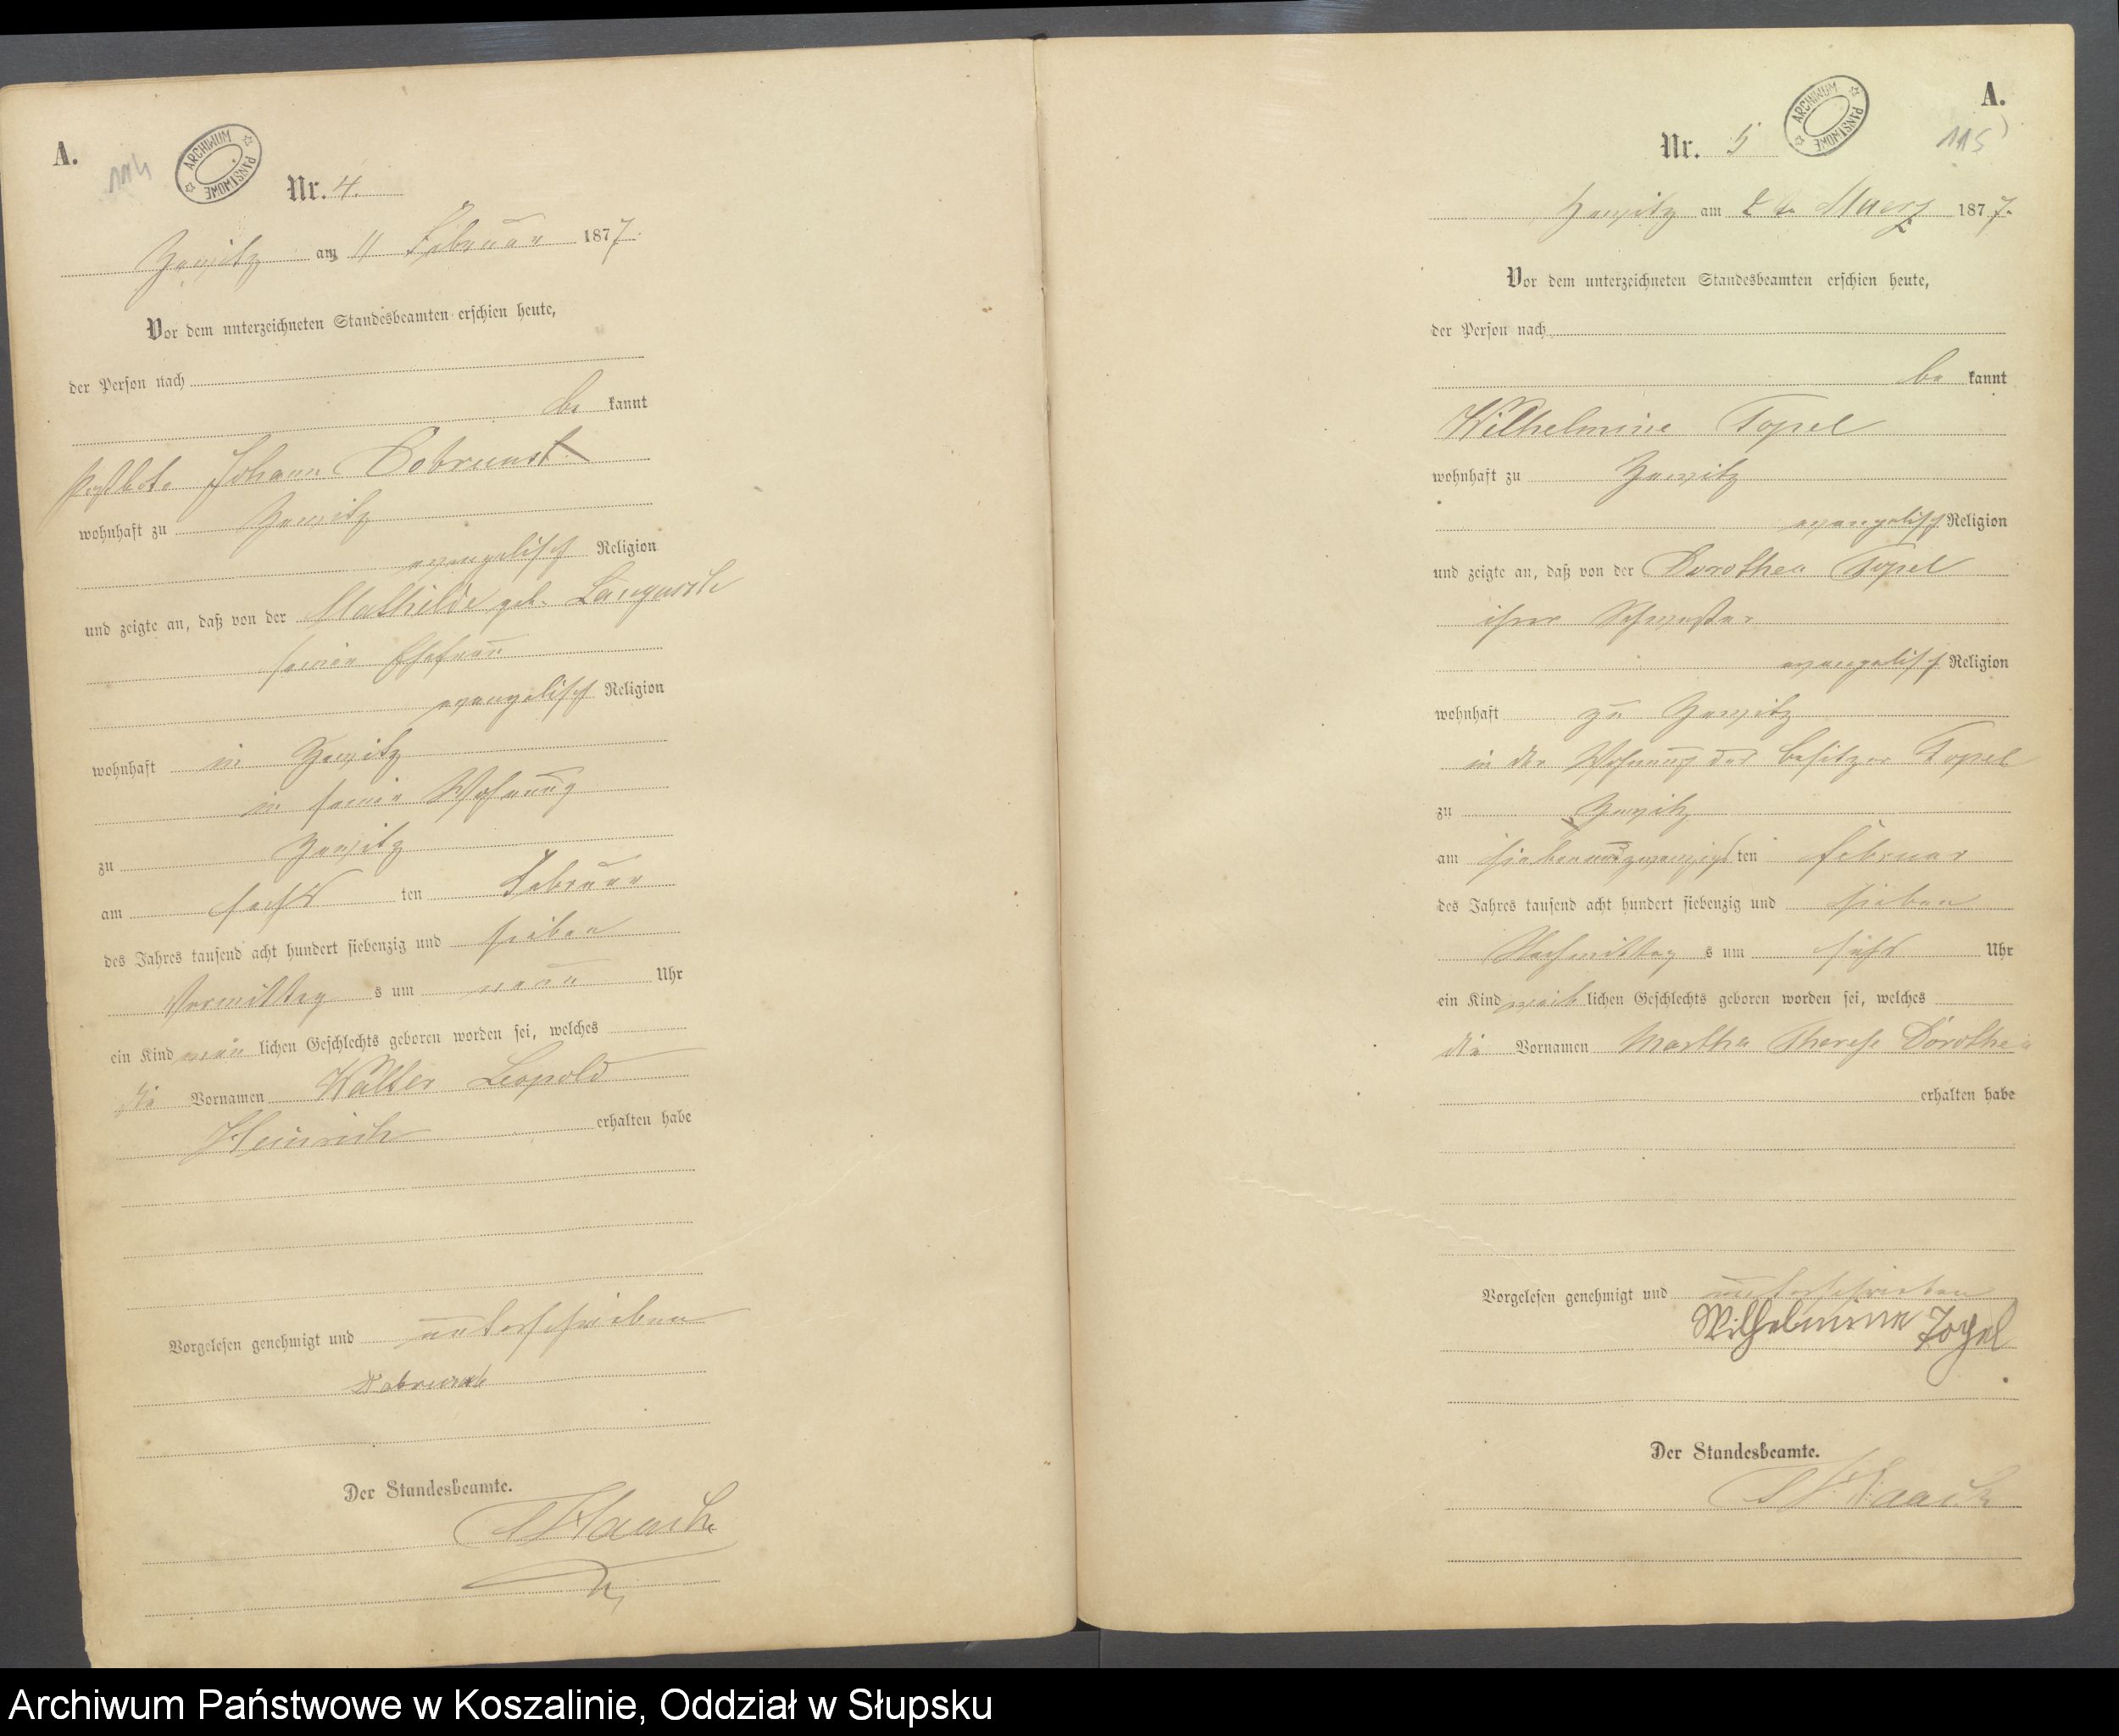 A.
114
ARCHIWUM PAŃSTWOWE
Nr. 4.
Zewitz am 11 Februar 1877.
Vor dem unterzeichneten Standesbeamten erschien heute,
der Person nach
be kannt
Johann
wohnhaft zu Zewitz
evangelisch Religion
und zeigte an, daß von der Mathilde geb.
seiner Ehefrau
evangelisch Religion
wohnhaft in Zewitz
in seiner Wohnung
zu Zewitz
am sechs ten Februar
des Jahres tausend acht hundert siebenzig und sieben
Vormittag s um neun Uhr
ein Kind män lichen Geschlechts geboren worden sei, welches
die Vornamen Walter Leopold
Heinrich erhalten habe
Vorgelesen genehmigt und unterschrieben
Der Standesbeamte.
A.
115
ARCHIWUM PAŃSTWOWE
Nr. 5
Zewitz am 2 te Maerz 1877.
Vor dem unterzeichneten Standesbeamten erschien heute,
der Person nach
be kannt
Wilhelmine Topel
wohnhaft zu Zewitz
evangelisch Religion
und zeigte an, daß von der Dorothea Topel
ihrer Schwester
evangelisch Religion
wohnhaft zu Zewitz
in der Wohnung des Besitzer Topel
zu Zewitz
am siebenundzwanzigs ten Februar
des Jahres tausend acht hundert siebenzig und sieben
Nachmittag s um Uhr
ein Kind weib lichen Geschlechts geboren worden sei, welches
die Vornamen Martha Therese Dorothea
erhalten habe
Vorgelesen genehmigt und unterschrieben
Wilhelmine Topel
Der Standesbeamte.
Archiwum Państwowe w Koszalinie, Oddział w Słupsku